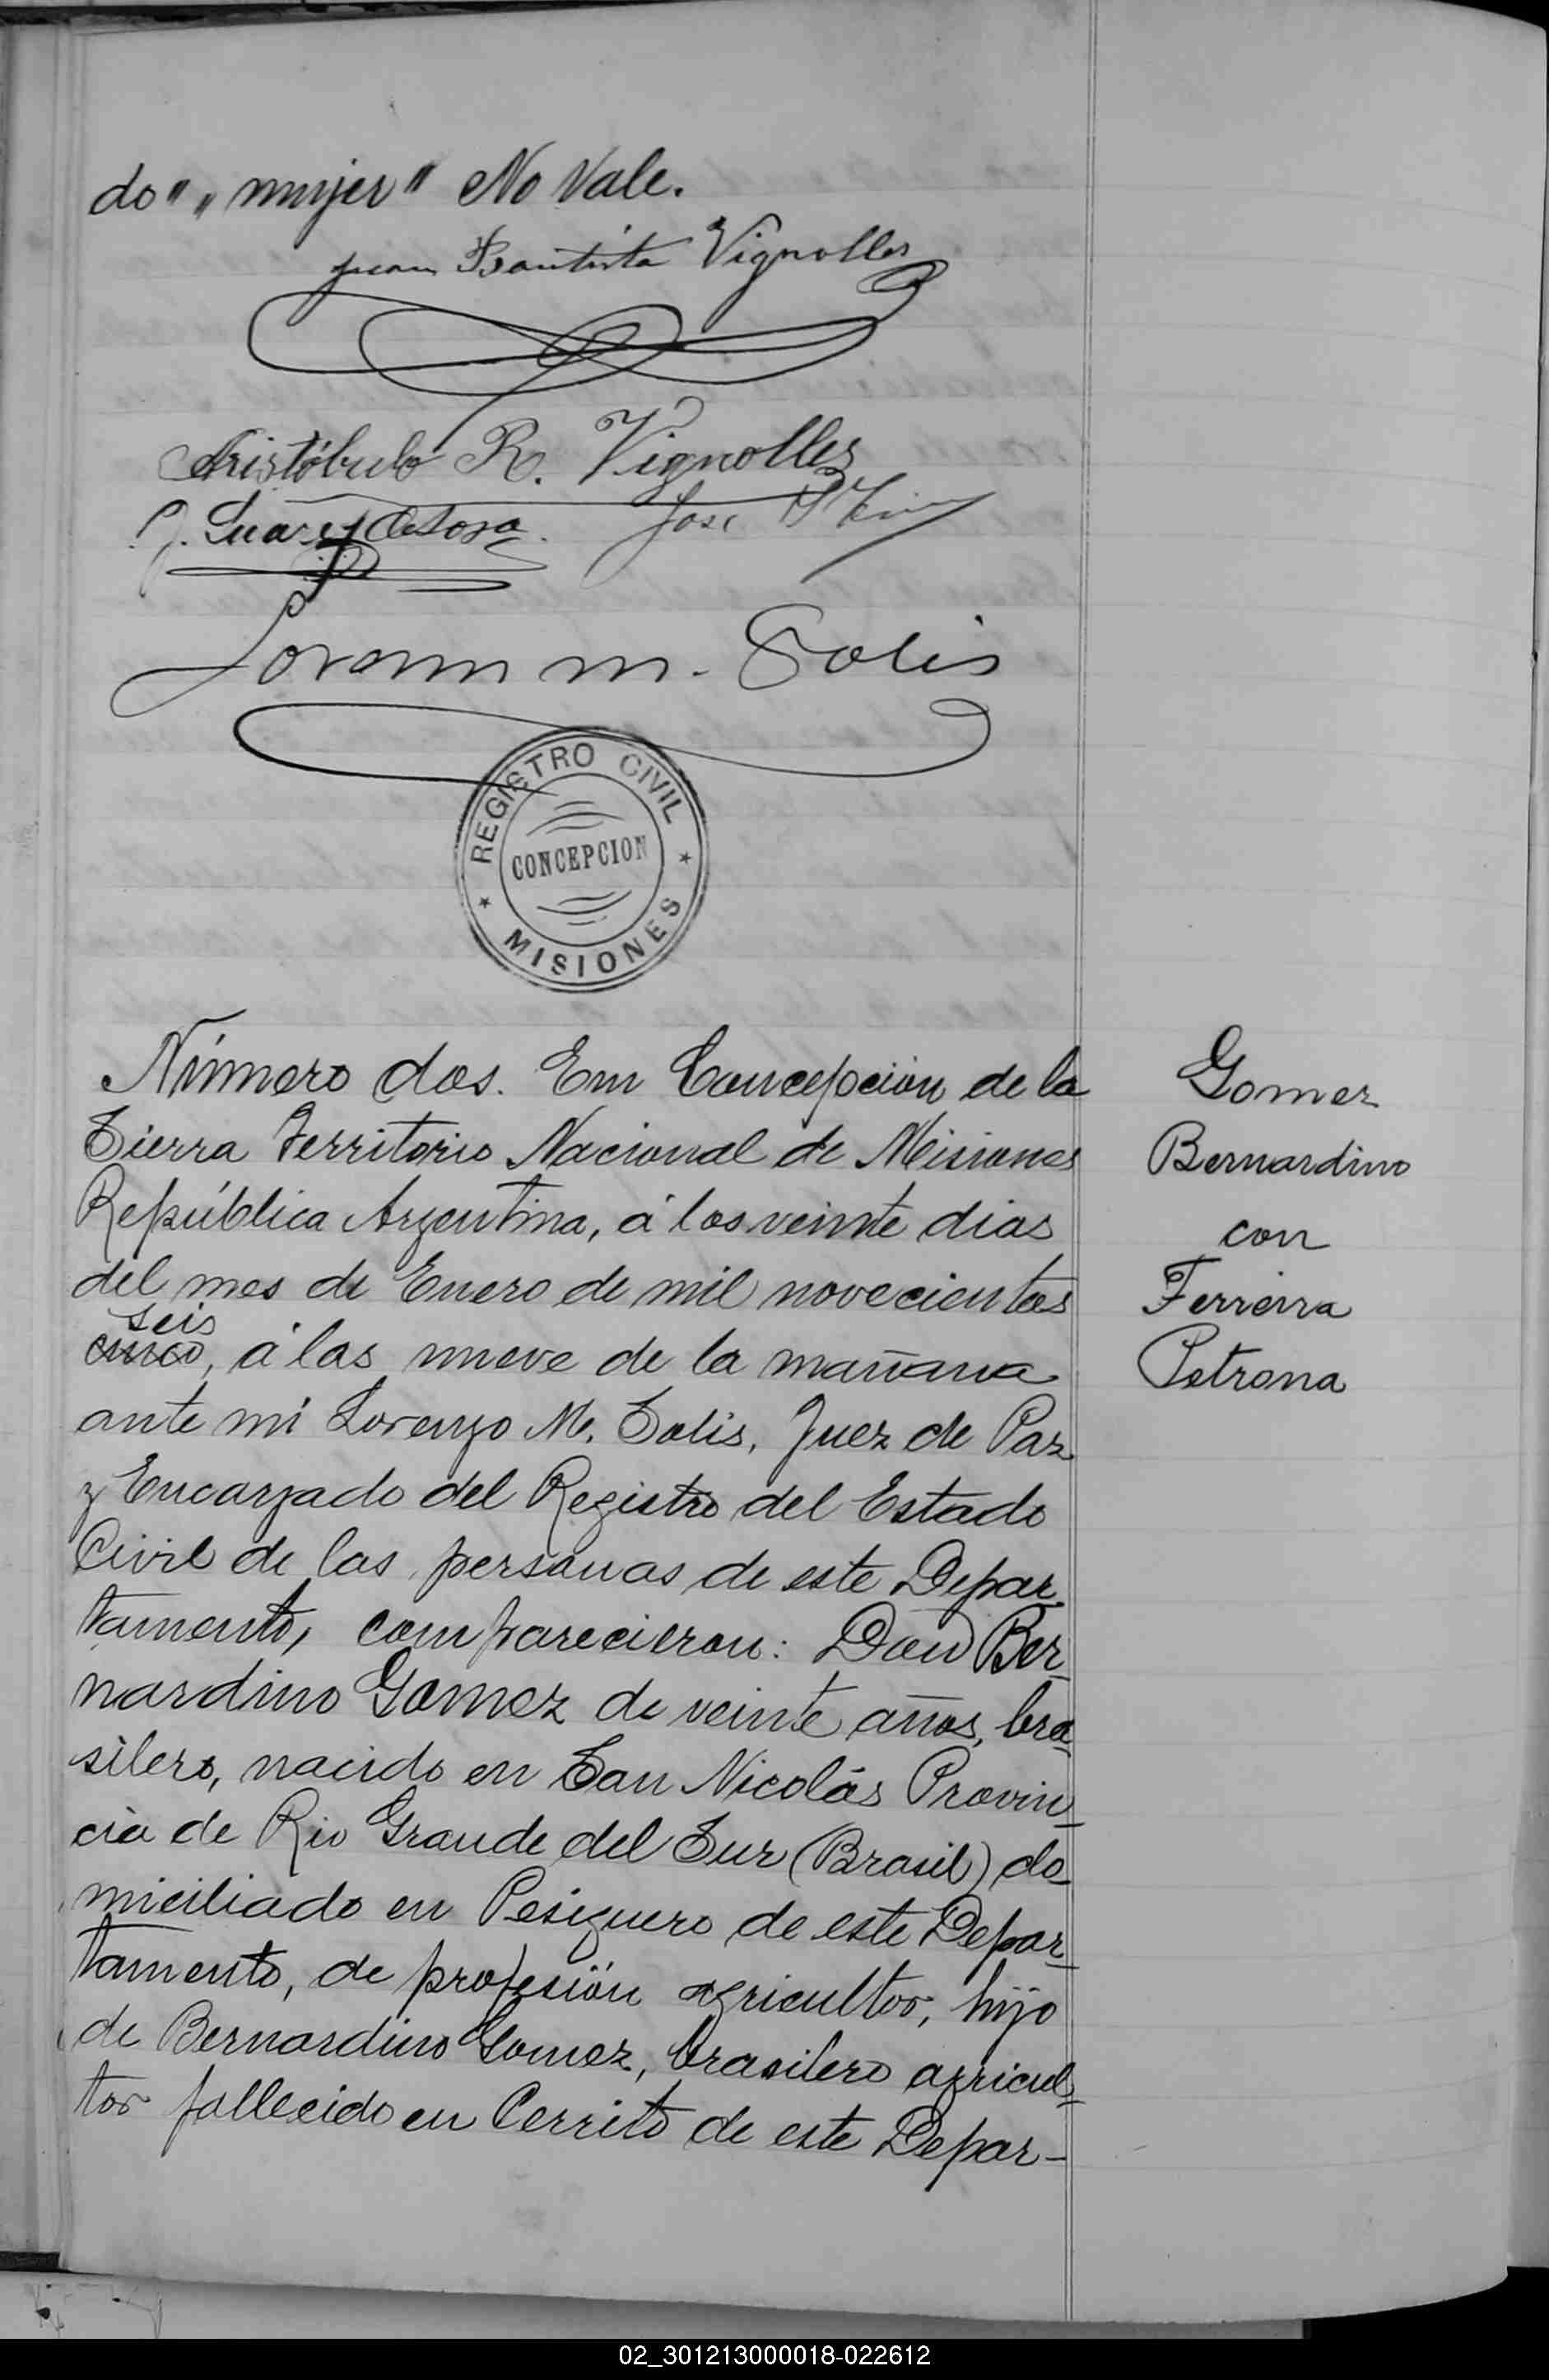 do" „ mujer" No Vale.
Juan Bautista Vignolles
Aristóbulo R. Vignolles
J. Suarez José
Lorenzo M. Solis
REGISTRO CIVIL
CONCEPCION
MISIONES
Número dos. En Concepción de la
Sierra Territorio Nacional de Misiones
República Argentina, á los veinte dias
del mes de Enero de mil novecientos
seis
cinco, á las nueve de la mañana
ante mí Lorenzo M. Solis, Juez de Paz
y Encargado del Registro del Estado
Civil de las personas de este Depar_
tamento, comparecieron: Don Ber_
nardino Gomez de veinte años, bra_
silero, nacido en San Nicolás Provin_
cia de Rio Grande del Sur (Brasil) do_
miciliado en Pesiguero de este Depar_
tamento, de profesión agricultor, hijo
de Bernardino Gomez, brasilero agricul_
tor fallecido en Cerrito de este Depar-
Gomez
Bernardino
con
Ferreira
Petrona
02_301213000018-022612